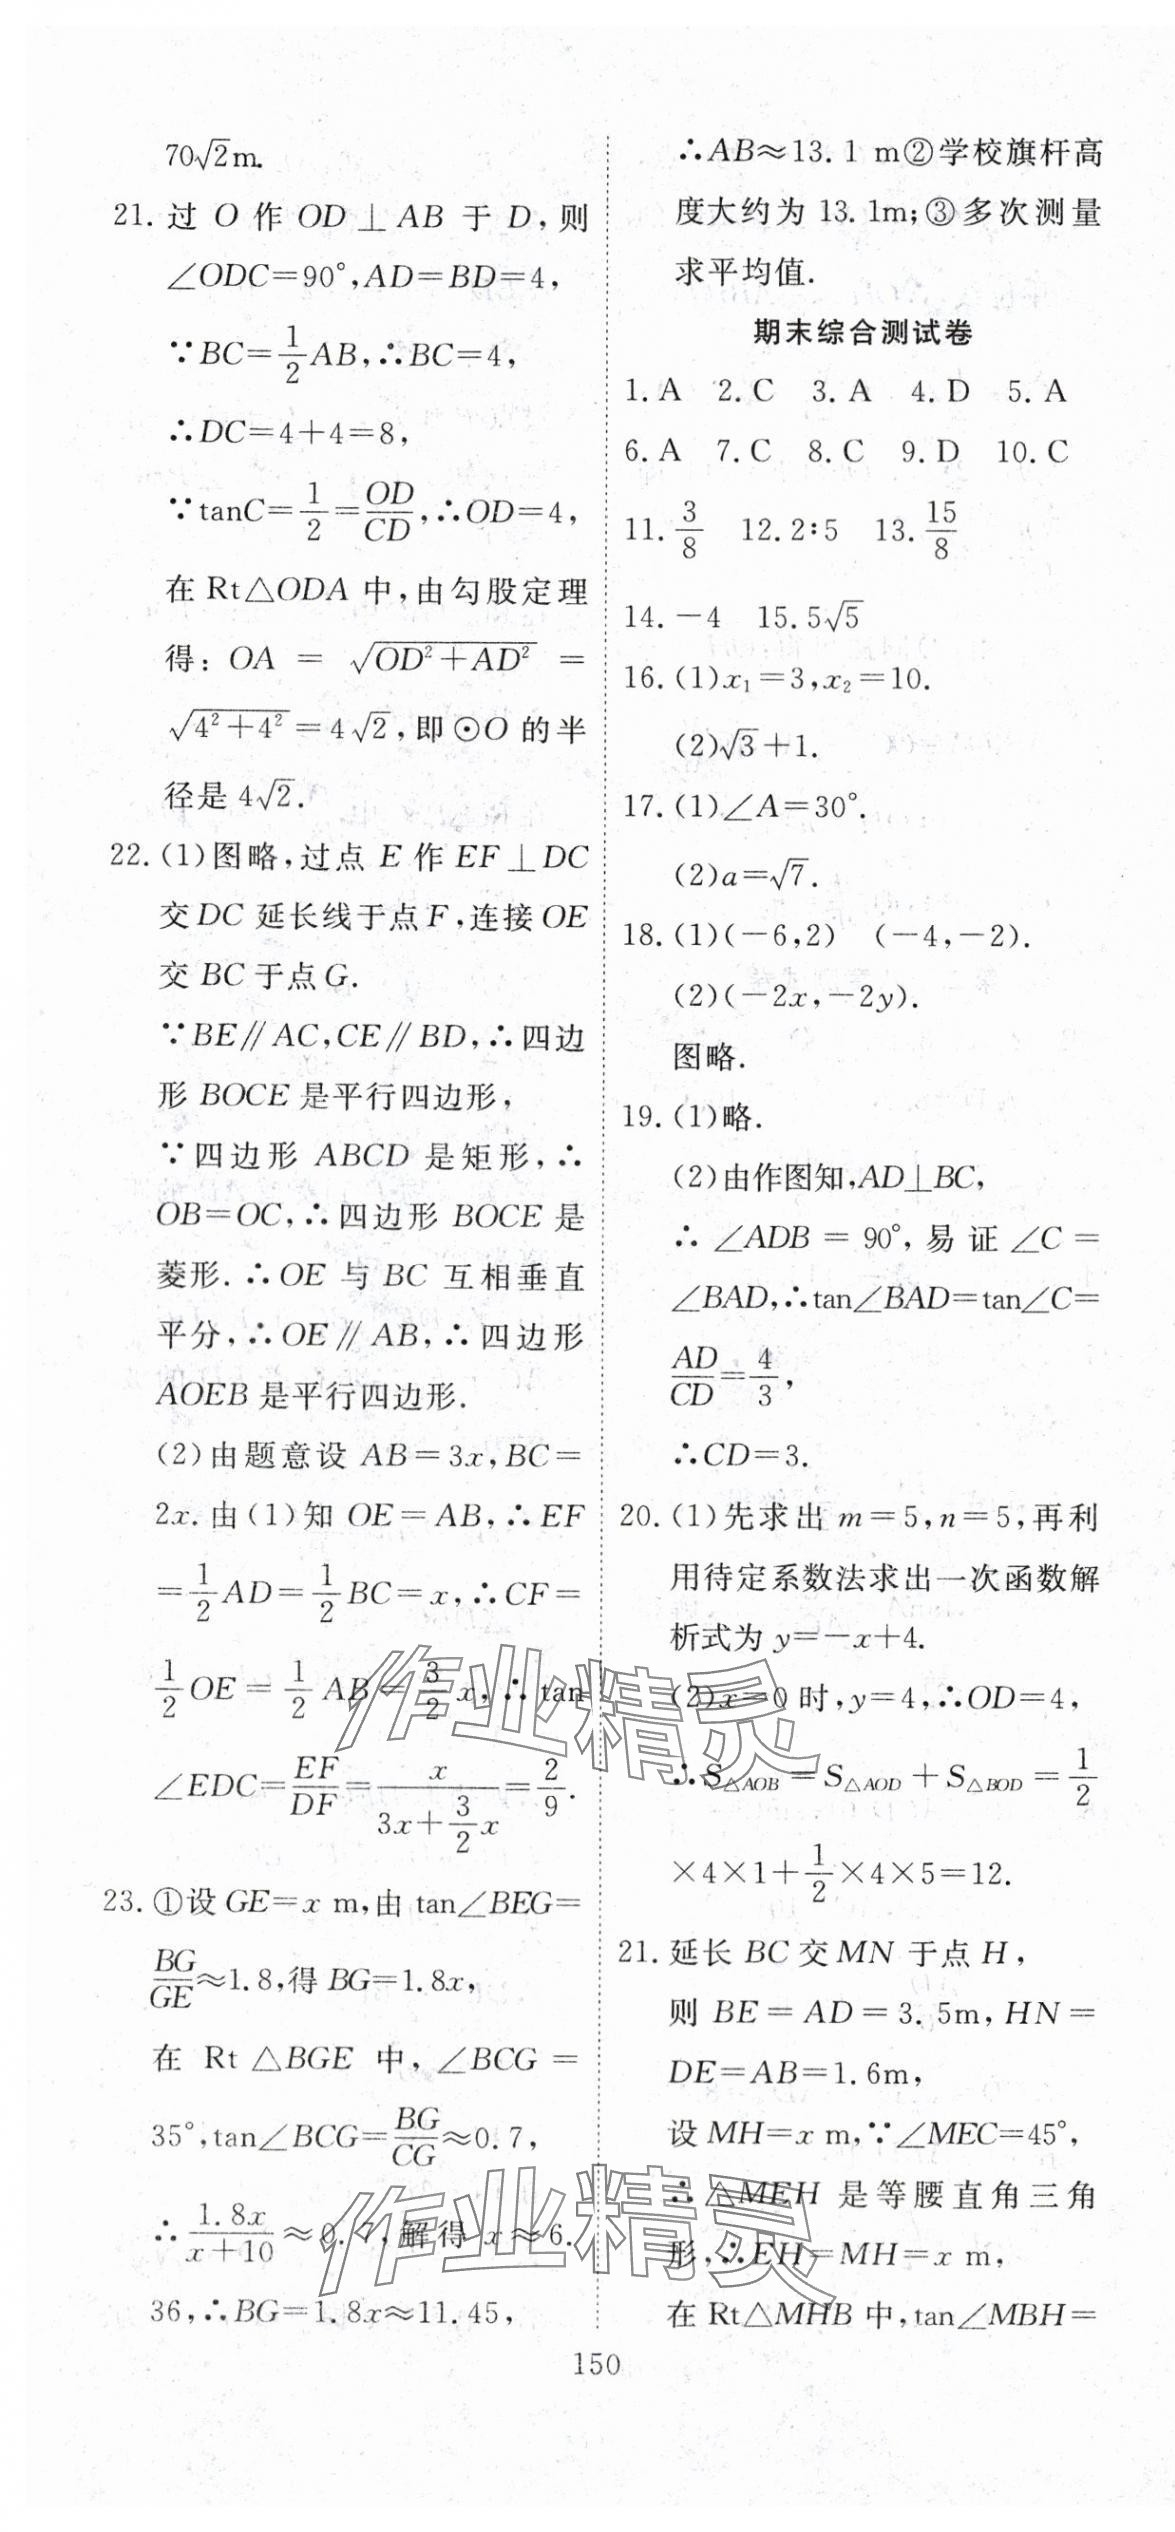 70√2m.
21. 过 O 作 OD⊥AB 于 D,则
∠ODC=90°,AD=BD=4,
∵BC=1/2AB,∴BC=4,
∴DC=4+4=8,
∵tanC=1/2=OD/CD,∴OD=4,
在 Rt△ODA 中,由勾股定理
得: OA = √(OD²+AD²) =
√(4²+4²)=4√2,即⊙O 的半
径是 4√2.
22. (1)图略,过点 E 作 EF⊥DC
交 DC 延长线于点 F,连接 OE
交 BC 于点 G.
∵BE∥AC,CE∥BD,∴四边
形 BOCE 是平行四边形,
∵四边形 ABCD 是矩形,∴
OB=OC,∴四边形 BOCE 是
菱形.∴OE 与 BC 互相垂直
平分,∴OE∥AB,∴四边形
AOEB 是平行四边形.
(2)由题意设 AB=3x,BC=
2x.由(1)知 OE=AB,∴EF
=1/2AD=1/2BC=x,∴CF=
1/2OE=1/2AB=3/2x,∴tan
∠EDC=EF/DF=x/(3x+3/2x)=2/9.
23. ①设 GE=x m,由 tan∠BEG=
BG/GE≈1.8,得 BG=1.8x,
在 Rt△BGE 中,∠BCG=
35°,tan∠BCG=BG/CG≈0.7,
∴1.8x/(x+10)≈0.7,解得 x≈6.
36,∴BG=1.8x≈11.45,
∴AB≈13.1 m②学校旗杆高
度大约为 13.1m;③多次测量
求平均值.
期末综合测试卷
1. A 2. C 3. A 4. D 5. A
6. A 7. C 8. C 9. D 10. C
11. 3/8 12. 2∶5 13. 15/8
14. -4 15. 5√5
16. (1)x₁=3,x₂=10.
(2)√3+1.
17. (1)∠A=30°.
(2)a=√7.
18. (1)(-6,2) (-4,-2).
(2)(-2x,-2y).
图略.
19. (1)略.
(2)由作图知,AD⊥BC,
∴∠ADB=90°,易证∠C=
∠BAD,∴tan∠BAD=tan∠C=
AD/CD=4/3,
∴CD=3.
20. (1)先求出 m=5,n=5,再利
用待定系数法求出一次函数解
析式为 y=-x+4.
(2)x=0 时,y=4,∴OD=4,
∴S△AOB=S△AOD+S△BOD=1/2
×4×1+1/2×4×5=12.
21. 延长 BC 交 MN 于点 H,
则 BE=AD=3.5m,HN=
DE=AB=1.6m,
设 MH=x m,∵∠MEC=45°,
∴△MEH 是等腰直角三角
形,∴EH=MH=x m,
在 Rt△MHB 中,tan∠MBH=
150
作业精灵
作业精灵